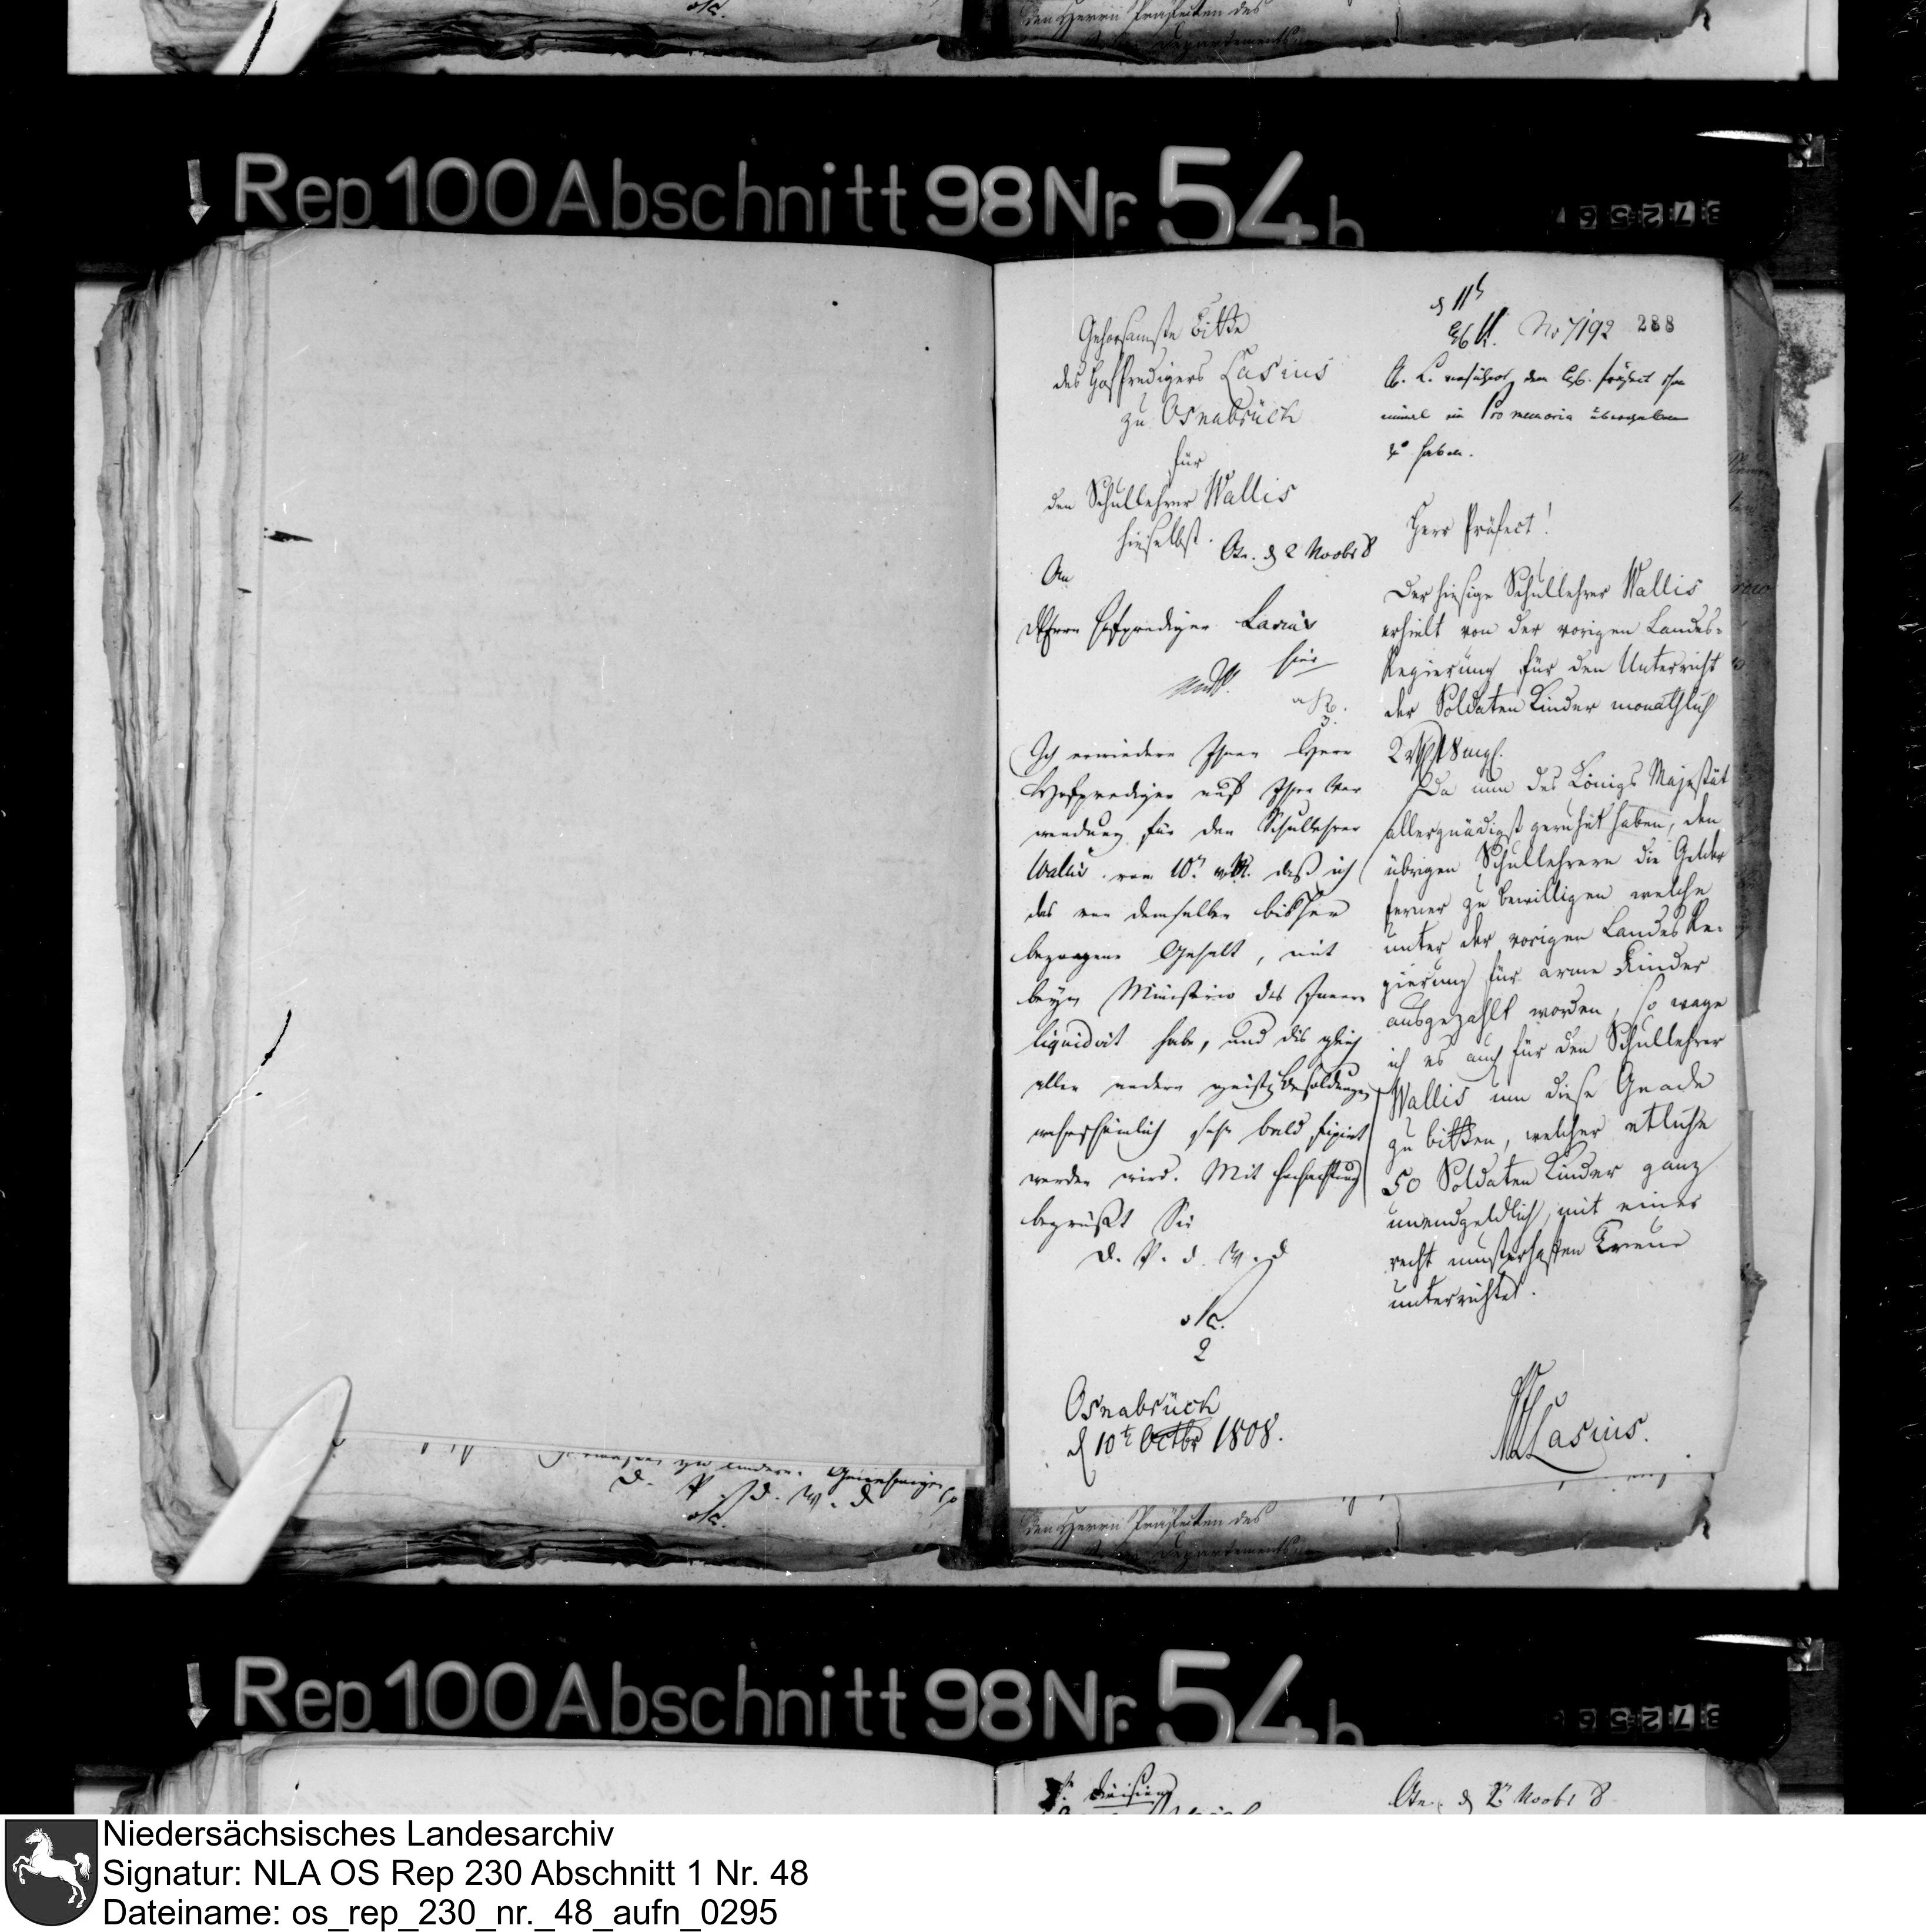 den Herrn Präfecten des
Rep. 100 Abschnitt 98 Nr. 54 h
Gehorsamste Bitte
des Hofpredigers Lasius
zu Osnabrück
für
den Schullehrer Wallis
hieselbst.
Osn. d 2 Novbr 8
An
den Herrn Hofprediger Lasius
hier
Ich erwiedere Ihnen Herr
Hofprediger auf Ihre Ver
wendung für den Schullehrer
Wallis vom 10. v. M. daß ich
das von demselben bisher
bezogene Gehalt, mit
beym Ministerio des Innern
liquidirt habe, und dies gleich
allen andern geistl. Besoldungen
wahrscheinlich sehr bald fixirt
werden wird. Mit Hochachtung
begrüßt Sie
D. P. d. W. D
2
Osnabrück
d 10t Octbr 1808.
d 11
No 7192 288
ein Pro memoria übergeben
zu haben.
Herr Präfect!
Der hiesige Schullehrer Wallis
erhielt von der vorigen Landes-
Regierung für den Unterricht
der Soldaten Kinder monathlich
2 rt 18 mgl.
Da nun des Königs Majestät
allergnädigst geruhet haben, den
übrigen Schullehrern die Gelder
ferner zu bewilligen welche
unter der vorigen Landes Re-
gierung für arme Kinder
ausgezahlt worden, so wage
ich es auch für den Schullehrer
Wallis um diese Gnade
zu bitten, welcher etliche
50 Soldaten Kinder ganz
unendgeldlich, mit einer
recht musterhaften Treue
unterrichtet.
Lasius.
D. P. d. W. D
den Herrn Präfecten des
Departements
Rep. 100 Abschnitt 98 Nr. 54 h
Division
Osn. d 2 Novbr 8
Niedersächsisches Landesarchiv
Signatur: NLA OS Rep 230 Abschnitt 1 Nr. 48
Dateiname: os_rep_230_nr._48_aufn_0295